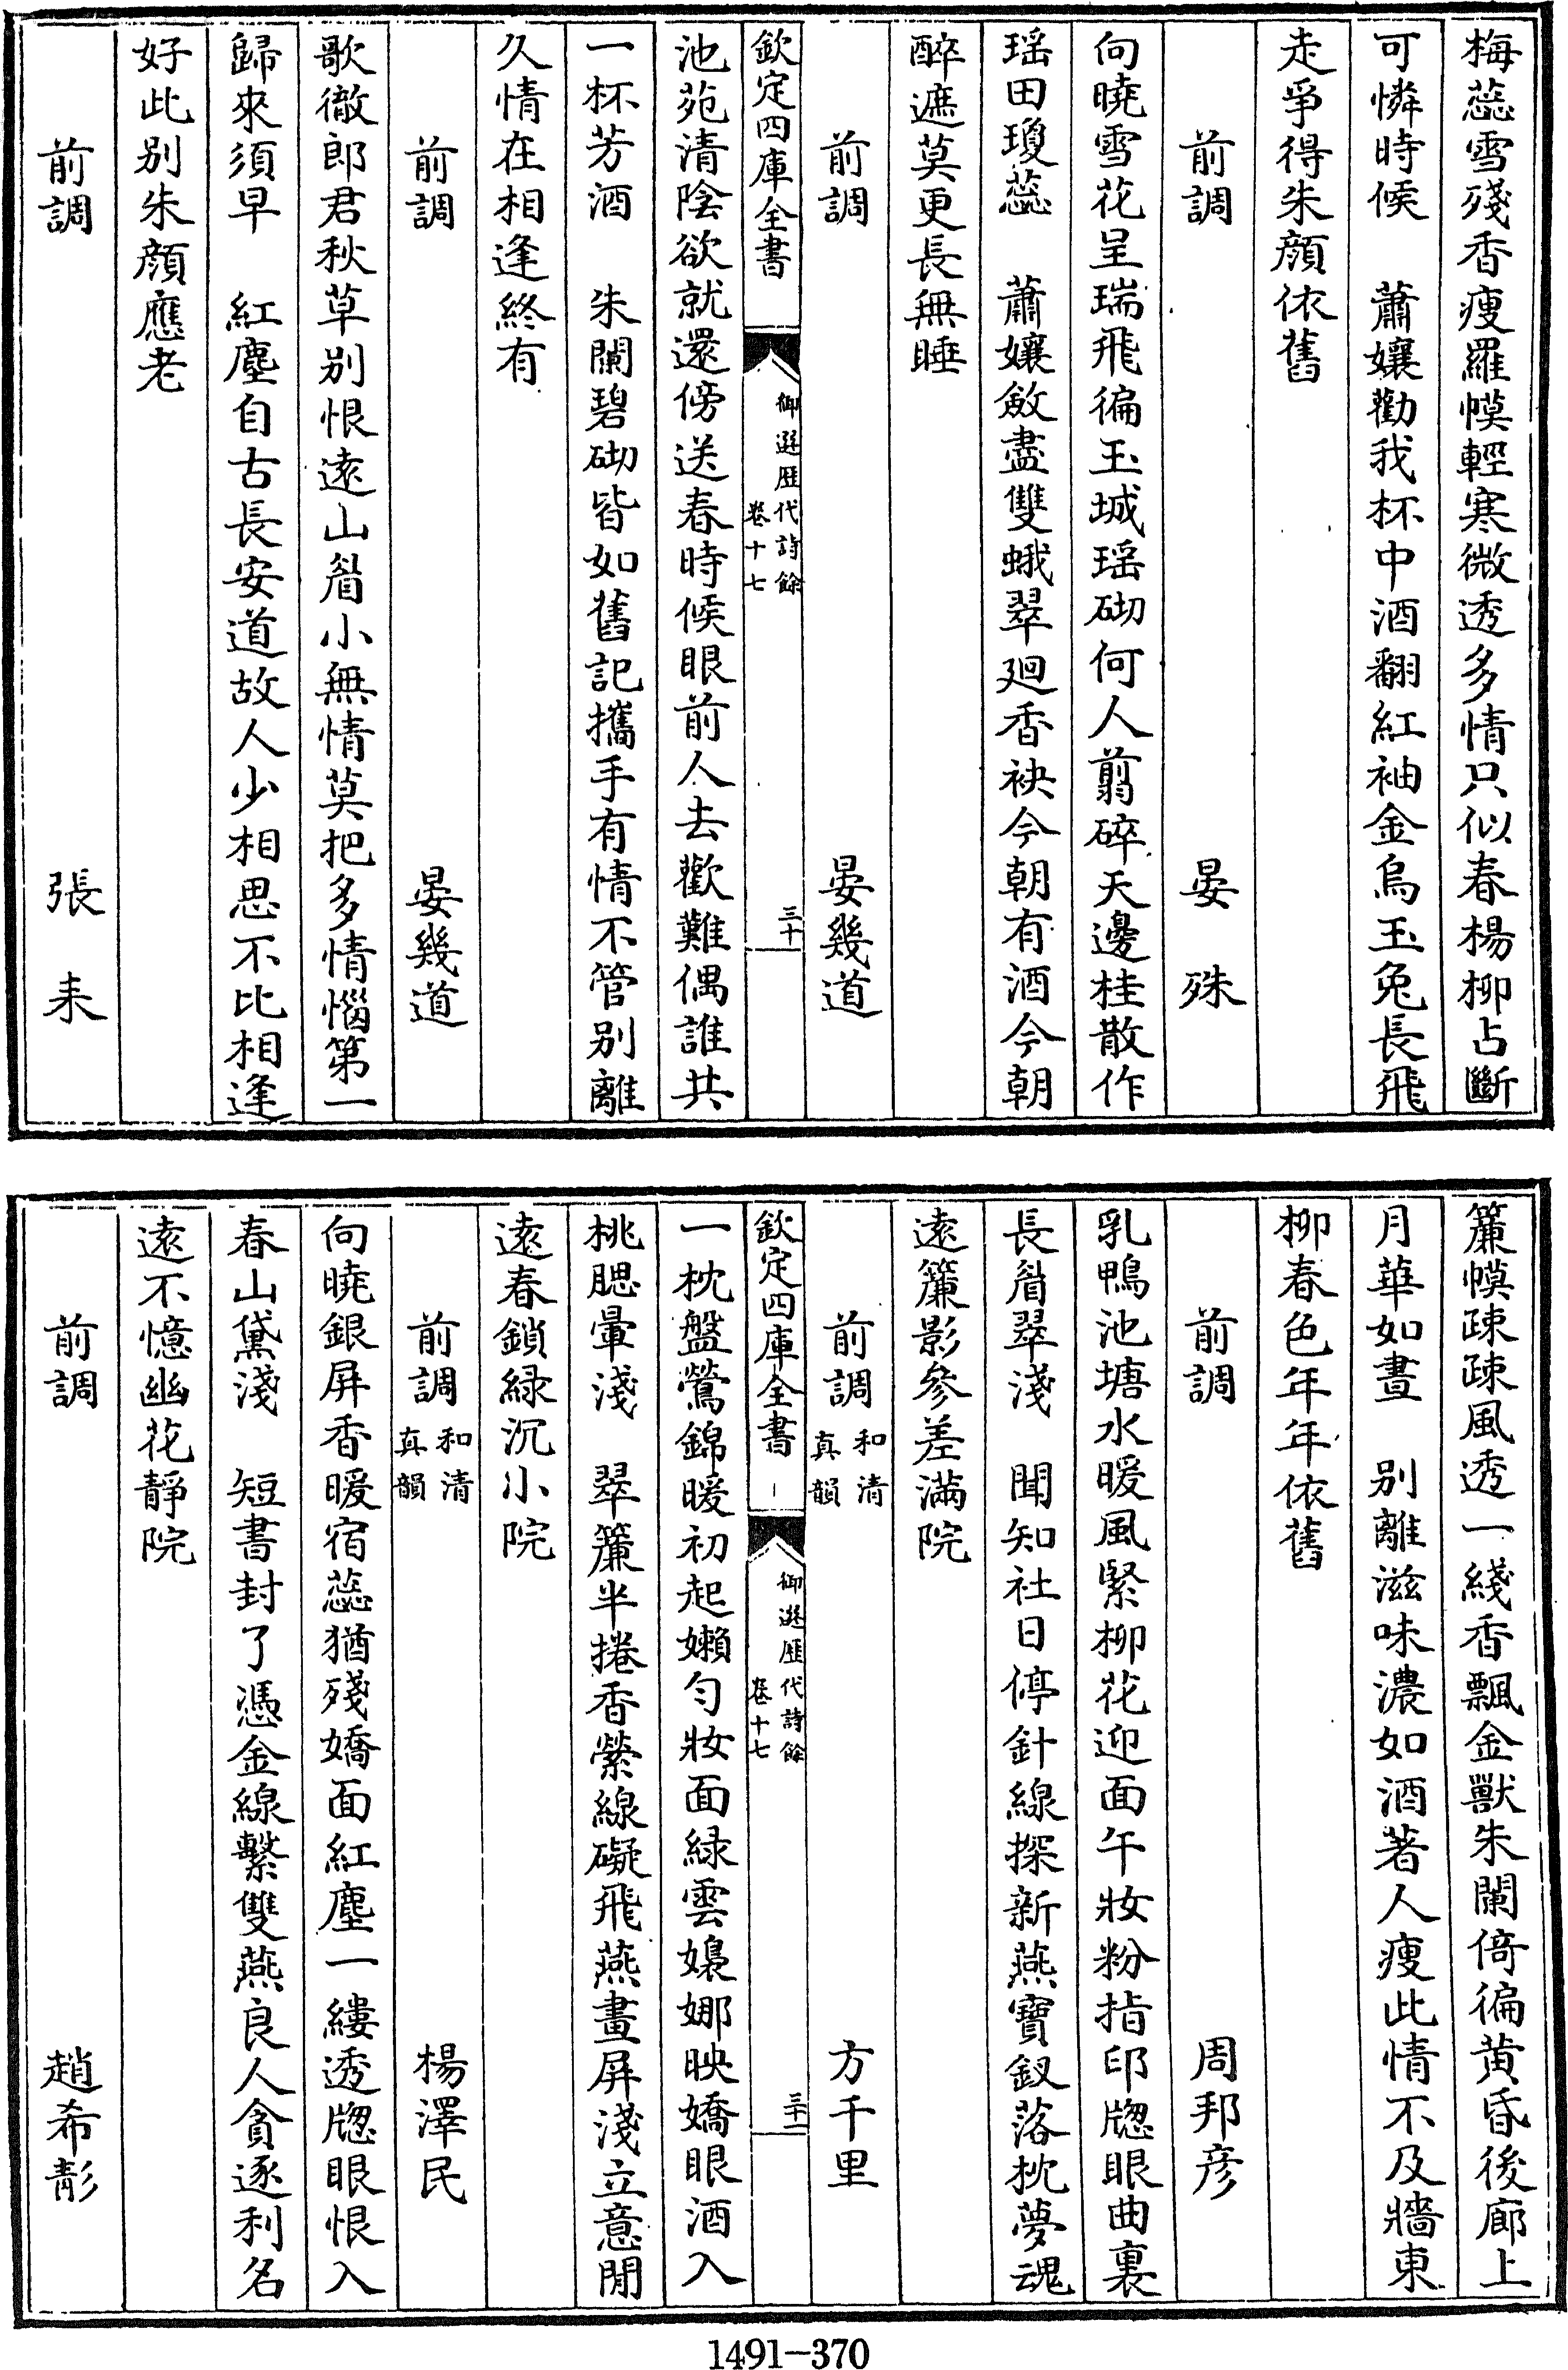 梅蕊雪殘香瘦羅幙輕寒微透多情只似春楊柳占斷
可憐時候　蕭孃勸我杯中酒翻紅袖金烏玉兔長飛
走爭得朱顔依舊
前調　晏殊
向曉雪花呈瑞飛徧玉城瑶砌何人翦碎天邊桂散作
瑶田瓊蕊　蕭孃斂盡雙蛾翠廻香袂今朝有酒今朝
醉遮莫更長無睡
前調　晏幾道
欽定四庫全書　御選歴代詩餘　卷十七　三十
池苑清陰欲就還傍送春時候眼前人去歡難偶誰共
一杯芳酒　朱闌碧砌皆如舊記攜手有情不管别離
久情在相逢終有
前調　晏幾道
歌徹郎君秋草别恨遠山眉小無情莫把多情惱第一
歸來須早　紅塵自古長安道故人少相思不比相逢
好此别朱顔應老
前調　張耒
簾幙疎疎風透一綫香飄金獸朱闌倚徧黄昏後廊上
月華如晝　别離滋味濃如酒著人瘦此情不及牆東
柳春色年年依舊
前調　周邦彦
乳鴨池塘水暖風緊柳花迎面午妝粉指印牕眼曲裏
長眉翠淺　聞知社日停針線探新燕寶釵落枕夢魂
遠簾影參差滿院
前調　和清真韻　方千里
欽定四庫全書　御選歴代詩餘　卷十七　三十一
一枕盤鶯錦暖初起嬾匀妝面緑雲嬝娜映嬌眼酒入
桃腮暈淺　翠簾半捲香縈線礙飛燕畫屏淺立意閒
遠春鎖緑沉小院
前調　和清真韻　楊澤民
向曉銀屏香暖宿蕊猶殘嬌面紅塵一縷透牕眼恨入
春山黛淺　短書封了憑金線繫雙燕良人貪逐利名
遠不憶幽花靜院
前調　趙希彭
1491—370